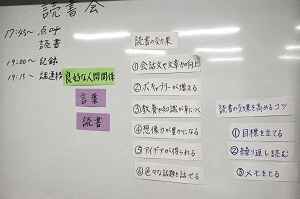 読書会
17:45~ 点呼
読書
19:00~ 記録
19:15~ 諸連絡
良好な人間関係
言葉
読書
読書の効果
①会話文や文章力の向上
②ボキャブラリーが増える
③教養や知識が身につく
④想像力が豊かになる
⑤アイデアが得られる
⑥色々な話題を話せる
読書の効果を高めるコツ
①目標を立てる
②繰り返し読む
③メモをとる